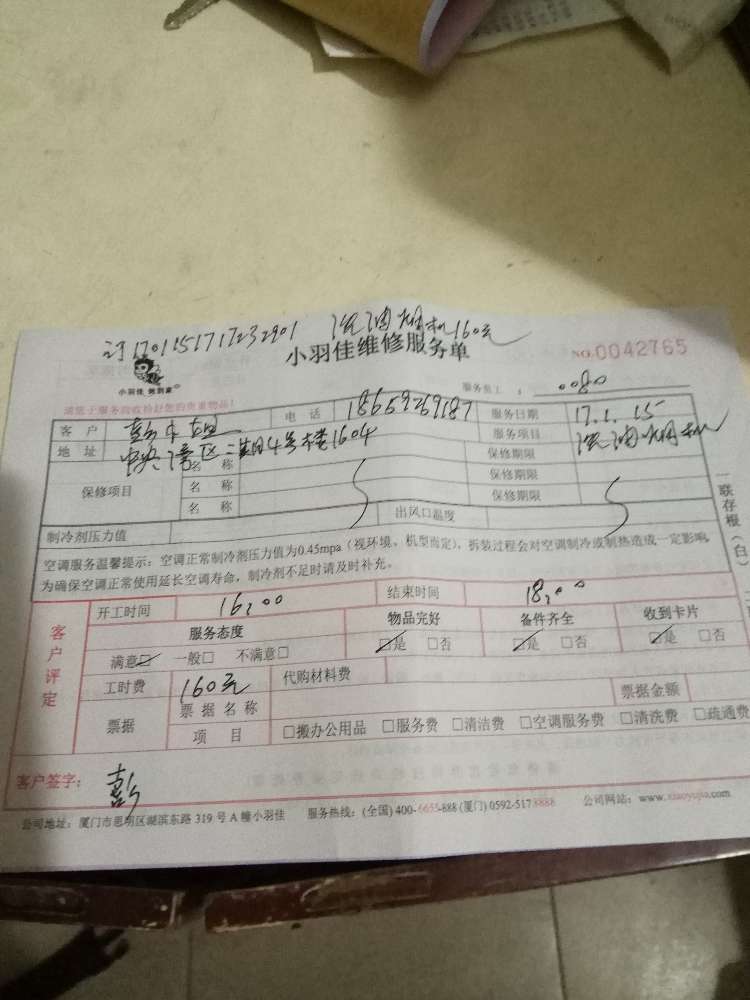 订1701151717232901 洗油烟机160元
小羽佳维修服务单 NO.0042765
小羽佳 到家
服务员工：0080
请您于服务前收拾好您的贵重物品！
客户 彭小姐 电话 18659269187 服务日期 17.1.15
地址 中央湾区二期4号楼1604 服务项目 洗油烟机
保修项目 名称 保修期限
名称 保修期限
名称 保修期限
制冷剂压力值 出风口温度
空调服务温馨提示：空调正常制冷剂压力值为0.45mpa（视环境、机型而定），拆装过程会对空调制冷或制热造成一定影响，
为确保空调正常使用延长空调寿命，制冷剂不足时请及时补充。
一联存根（白）
客户评定
开工时间 16:00 结束时间 18:00
服务态度 物品完好 备件齐全 收到卡片
满意☑ 一般□ 不满意□ ☑是 □否 ☑是 □否 ☑是 □否
工时费 160元 代购材料费
票据 票据名称 票据金额
项目 □搬办公用品 □服务费 □清洁费 □空调服务费 □清洗费 □疏通费
客户签字：彭
公司地址：厦门市思明区湖滨东路319号A幢小羽佳 服务热线：(全国) 400-6655-888 (厦门) 0592-5178888 公司网站：www.xiaoyujia.com